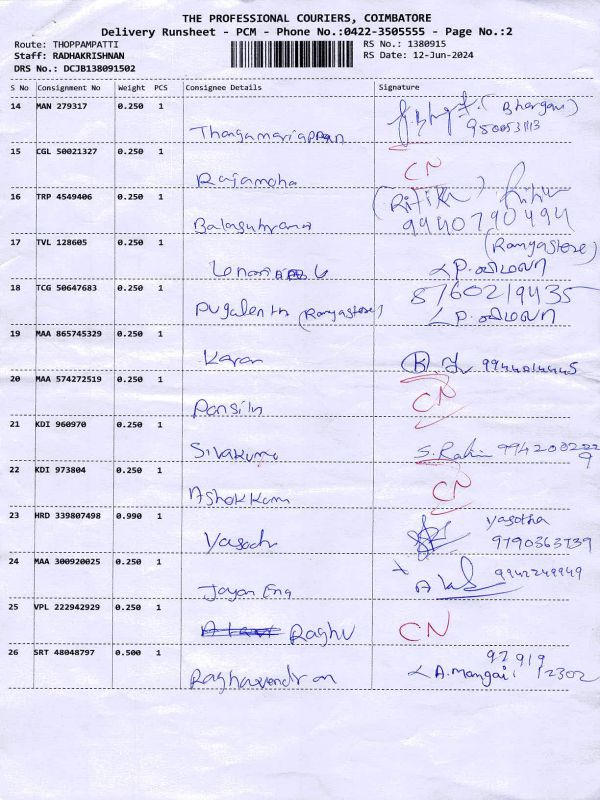 THE PROFESSIONAL COURIERS, COIMBATORE
Delivery Runsheet - PCM - Phone No.:0422-3505555 - Page No.:2
Route: THOPPAMPATTI
RS No.: 1380915
Staff: RADHAKRISHNAN
RS Date: 12-Jun-2024
DRS No.: DCJB138091502
S No Consignment No Weight PCS Consignee Details Signature
14 MAN 279317 0.250 1
(Bhargavi)
Thangamariappan
15 CGL 50021327 0.250 1
CN
Rajamoha
16 TRP 4549406 0.250 1
(Ritika)
Balasubramani 9940790494
17 TVL 128605 0.250 1
(Rangastore)
P. விமலா
18 TCG 50647683 0.250 1
8760219435
Pugalenth (Rangastore) P. விமலா
19 MAA 865745329 0.250 1
Karan
20 MAA 574272519 0.250 1
CN
21 KDI 960970 0.250 1
Sivakumar
22 KDI 973804 0.250 1
CN
Ashokkum
23 HRD 339807498 0.990 1
yasotha
Yasodh 9790363739
24 MAA 300920025 0.250 1
9942249949
Jayan Eng
25 VPL 222942929 0.250 1
Raghu CN
26 SRT 48048797 0.500 1
92919
Raghavendran A. Mangai 12302